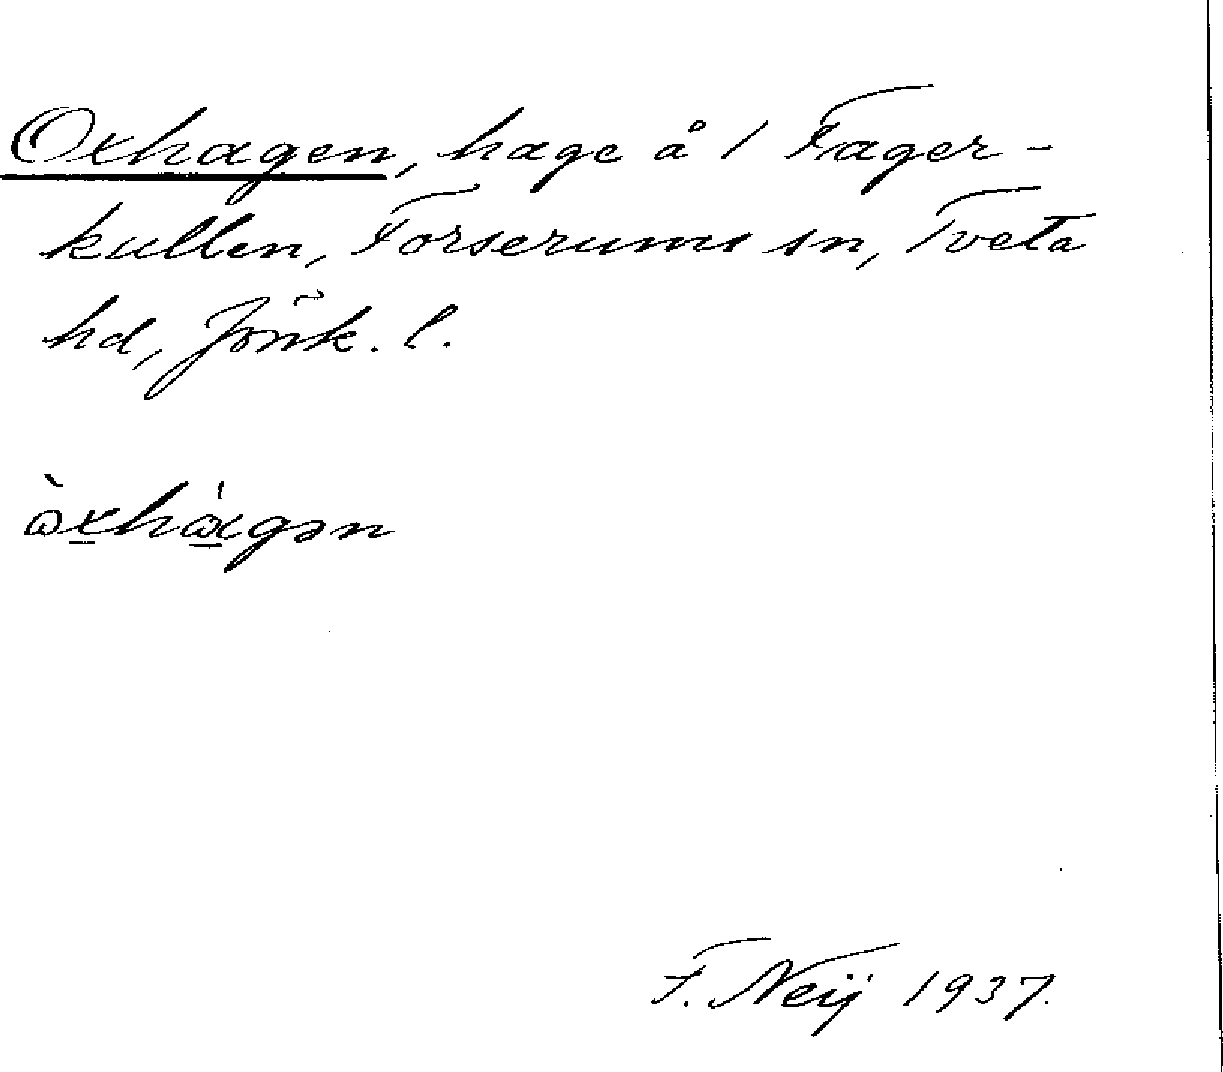 Oxhagen, hage å 1 Fager-
kullen, Forserums sn, Tveta
hd, Jönk. l.
ὼxhàgən
F. Neij 1937.